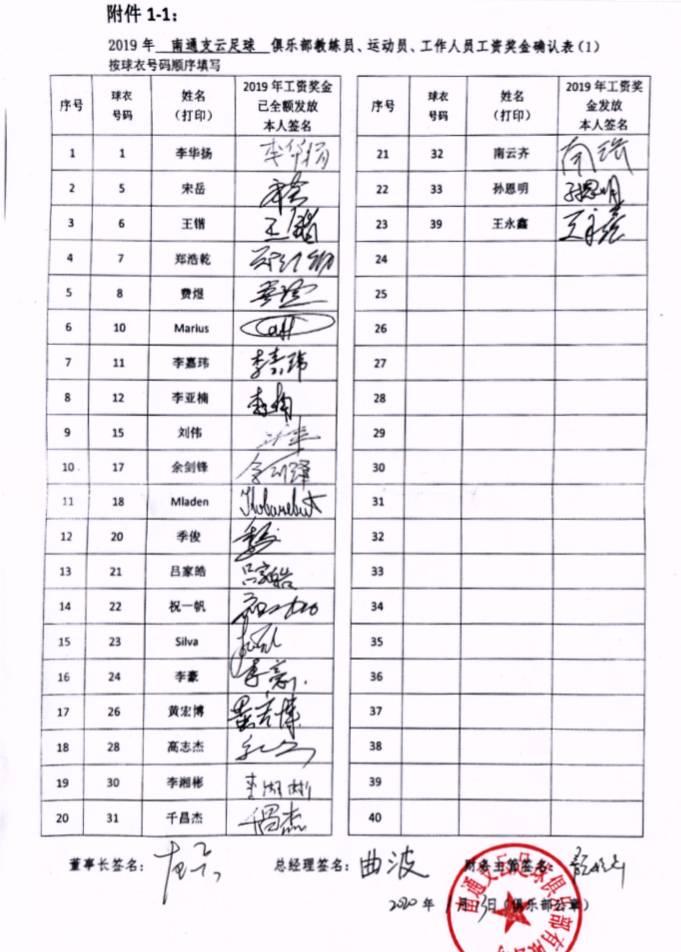 附件 1-1：
2019 年 南通支云足球 俱乐部教练员、运动员、工作人员工资奖金确认表(1)
按球衣号码顺序填写
序号 球衣号码 姓名（打印） 2019 年工资奖金已全额发放本人签名
1 1 李华扬 李华扬
2 5 宋岳
3 6 王锴 王锴
4 7 郑浩乾
5 8 费煜 费煜
6 10 Marius
7 11 李嘉玮 李嘉玮
8 12 李亚楠
9 15 刘伟
10 17 余剑锋
11 18 Mladen
12 20 季俊
13 21 吕家皓 吕家皓
14 22 祝一帆
15 23 Silva
16 24 李豪
17 26 黄宏博 黄宏博
18 28 高志杰
19 30 李湘彬 李湘彬
20 31 千昌杰 千昌杰
序号 球衣号码 姓名（打印） 2019 年工资奖金发放本人签名
21 32 南云齐
22 33 孙恩明 孙恩明
23 39 王永鑫 王永鑫
24
25
26
27
28
29
30
31
32
33
34
35
36
37
38
39
40
董事长签名： 总经理签名：曲波 财务主管签名：
2020 年 1 月 日（俱乐部公章）
南通支云足球俱乐部有限公司